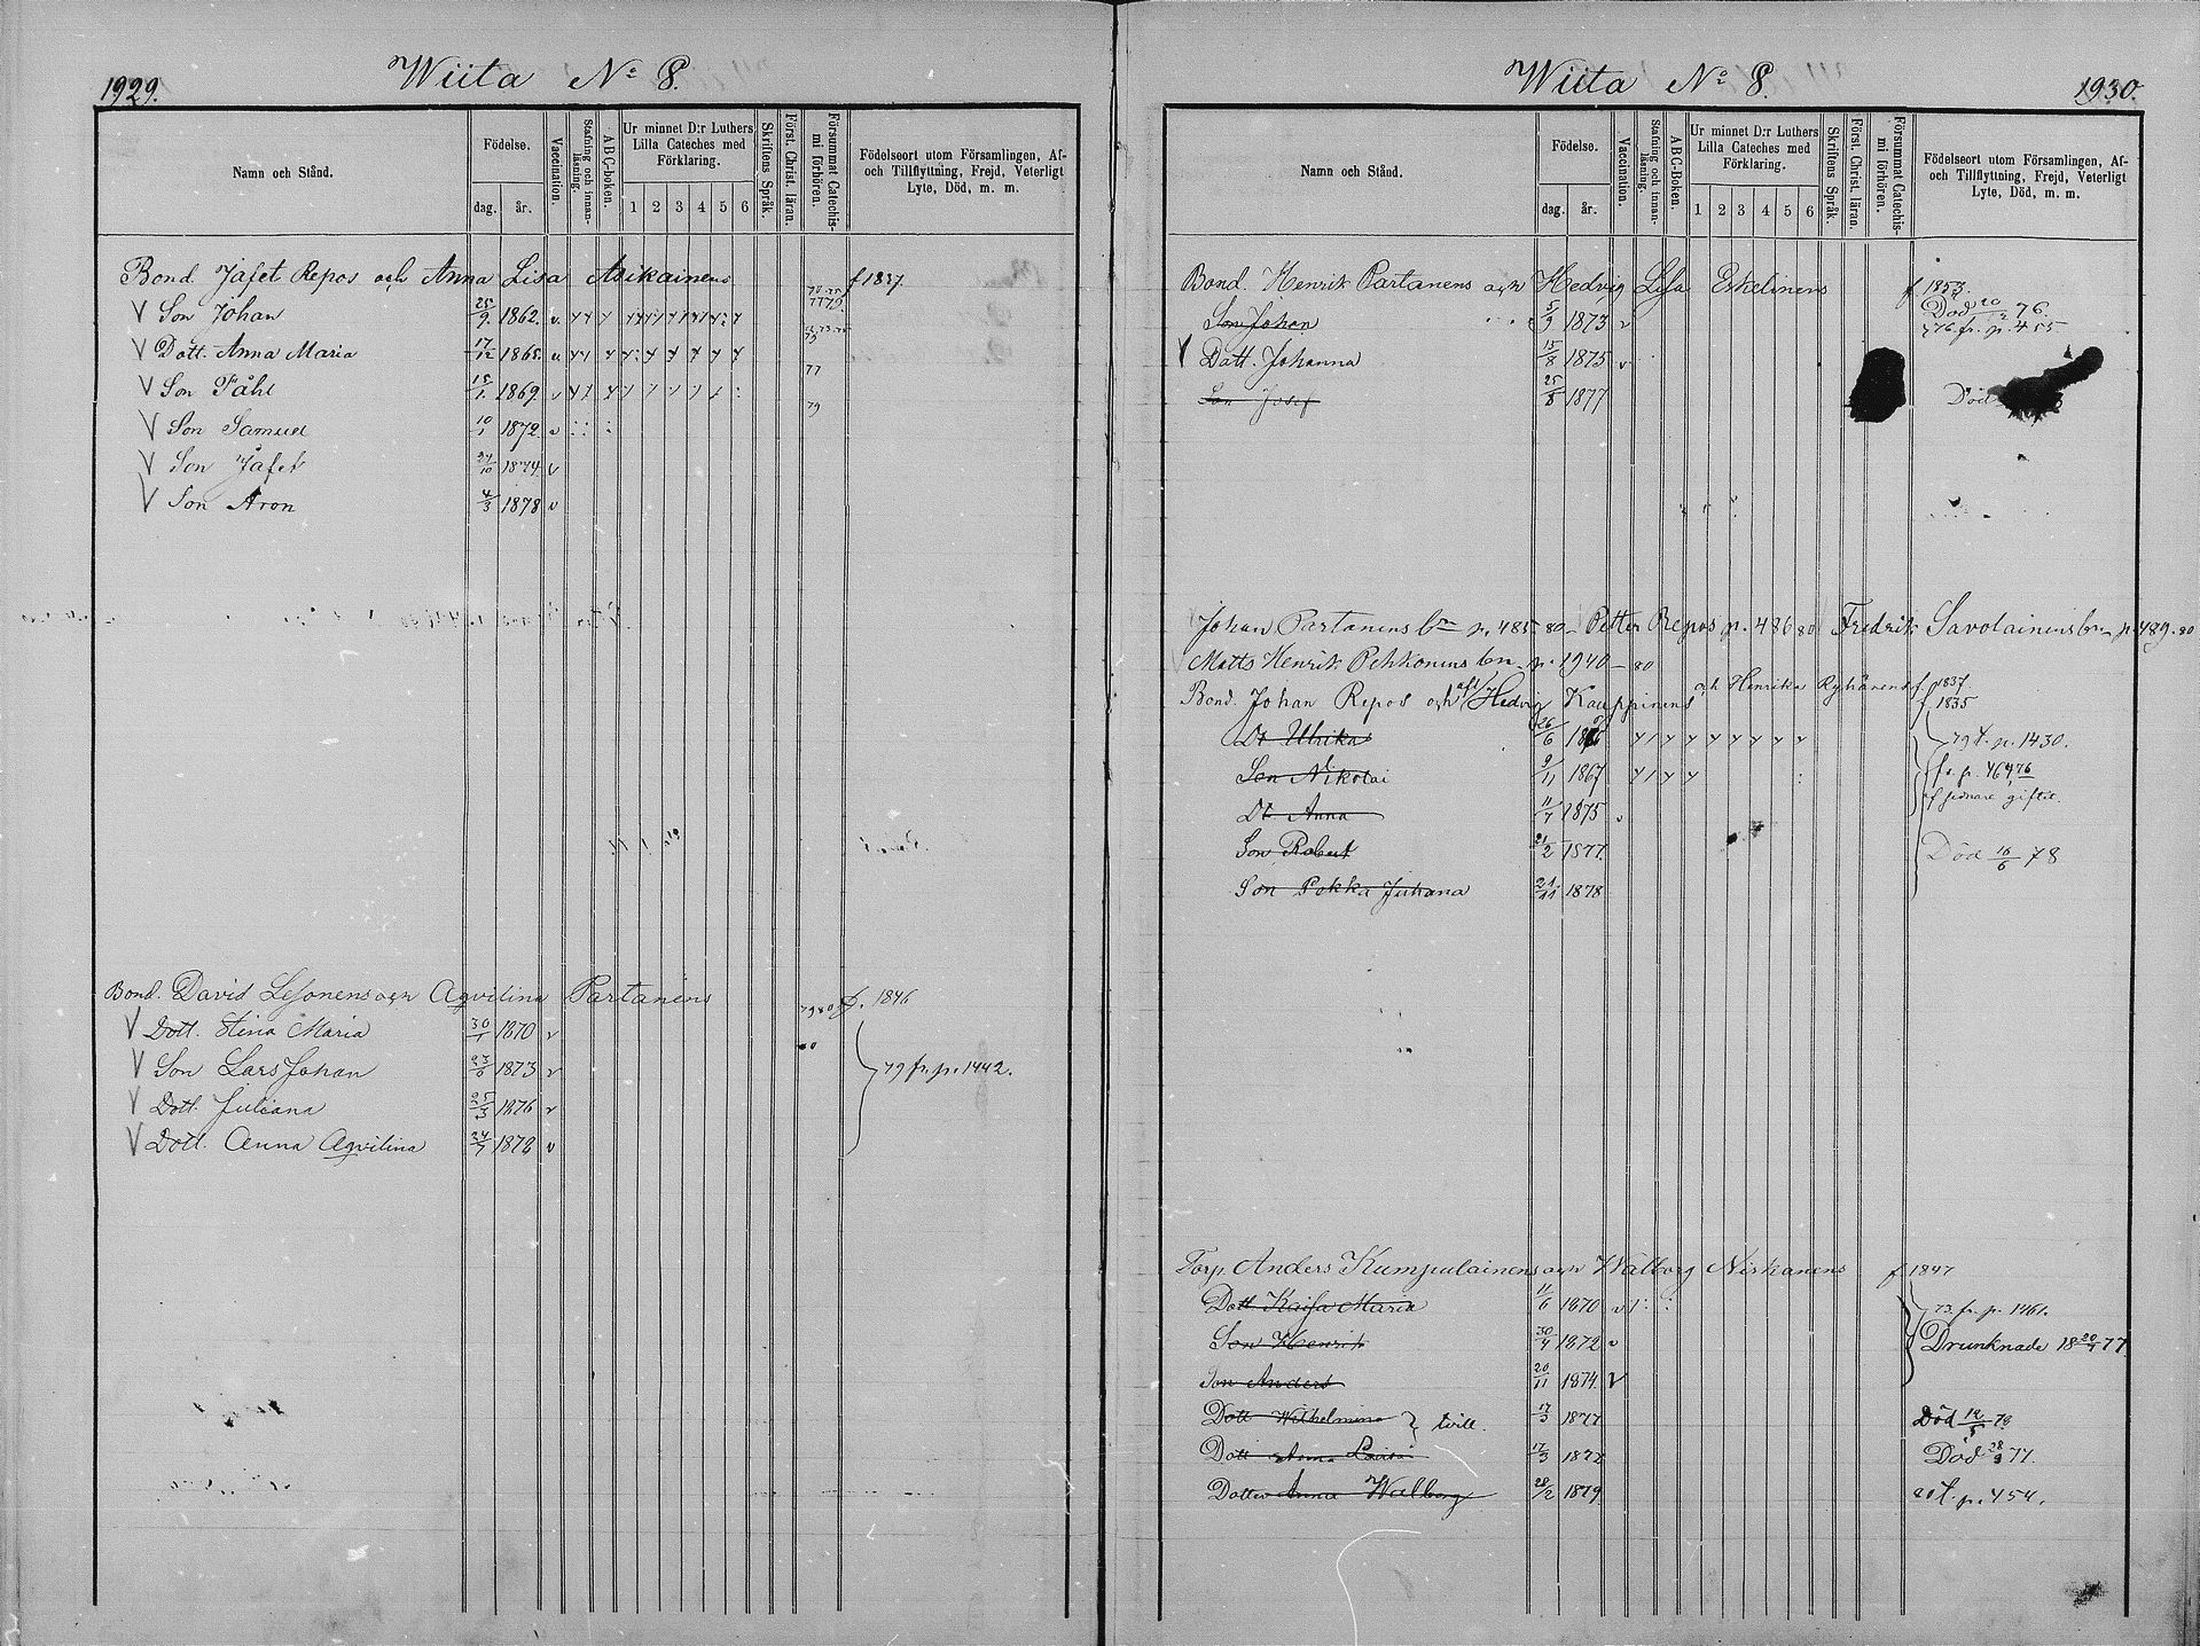 1929.
Wiita No 8.
Namn och Stånd.
Födelse.
dag.
år.
Vaccination.
Stafning och innanläsning.
ABC-boken.
Ur minnet D:r Luthers Lilla Cateches med Förklaring.
1 2 3 4 5 6
Skriftens Språk.
Först. Christ. läran.
Försummat Catechismi förhören.
Födelseort utom Församlingen, Af- och Tillflyttning, Frejd, Veterligt Lyte, Död, m. m.
Bond. Jafet Repos och Anna Lisa Asikainens f 1837.
V Son Johan 25/9. 1862. v.
V Dott. Anna Maria 17/12 1865. v
V Son Påhl 15/1. 1869. v 77
V Son Samuel 10/1 1872. v 79
V Son Jafet 27/10 1874. v
V Son Aron 4/3 1878 v
Bond. David Lesonens och Aqvilina Partanens 79 80 f. 1846
V Dott. Stina Maria 30/1 1870 v
V Son Lars Johan 23/6 1873 v 79 fr. p. 1442.
V Dott. Juliana 25/3 1876 v
V Dott. Anna Aqvilina 24/7 1878 v
Wiita No 8.
1930.
Namn och Stånd.
Födelse.
dag.
år.
Vaccination.
Stafning och innanläsning.
ABC-Boken.
Ur minnet D:r Luthers Lilla Cateches med Förklaring.
1 2 3 4 5 6
Skriftens Språk.
Först. Christ. läran.
Försummat Catechismi förhören.
Födelseort utom Församlingen, Af- och Tillflyttning, Frejd, Veterligt Lyte, Död, m. m.
Bond. Henrik Partanens och Hedvig Lisa Eskelinens f 1853.
Son Johan 5/9 1873 v Död 76.
76. fr. p. 455
V Dott. Johanna 15/8 1875 v
Son Josef 25/8 1877 Död
Johan Partanens bn p. 485. 80 - Petter Repos p. 486 80 Fredrik Savolainens bn p. 489. 80
Matts Henrik Pehkonens bn. p. 1940 - 80
och Henrika Ryhänens f. 1837
Bond. Johan Repos och afl. Hedvig Kauppinens f 1835
Dr Ulrika 26/6 79 t. p. 1430.
Son Nikolai 9/11 1867 fr. p. 464 76
Dr Anna 11/7 1875 v af sednare giftet.
Son Robert 21/2 1877. Död 16/6 78
Son Pokka Juhana 21/11 1878
Torp. Anders Kumpulainens och Walborg Niskanens f 1847
Dott Kaisa Maria 11/6 1870 v 73. fr. p. 1461.
Son Henrik 30/4 1872 v Drunknade 18 20/7 77
Son Anders 20/11 1874. V
Dott Wilhelmina } tvill. 17/3 1877 Död 78
Dott Anna Lovisa 17/3 1877 Död 77.
Dotter Anna Walborg 28/2 1879. 80 t. p. 454.